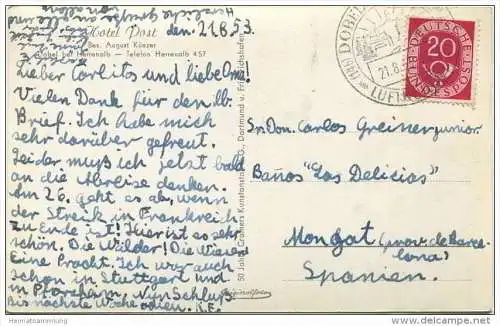 Hotel Post den 21.8.53.
Bes. August Künzer
Dobel bei Herrenalb — Telefon Herrenalb 457
Lieber Carlitos und liebe Oma!
Vielen Dank für den lb.
Brief. Ich habe mich
sehr darüber gefreut.
Leider muß ich jetzt bald
an die Abreise denken.
Am 26. geht es ab, wenn
der Streik in Frankreich
zu Ende ist! Hier ist es sehr
schön. Die Wälder! Die Wiesen!
Eine Pracht. Ich war auch
schon in Stuttgart und
in Pforzheim. Nun Schluß
Bis nächste Woche
50 Jahre Cramers Kunstanstalt Dortmund
DOBEL
21.8.
LUFT
DEUTSCHE BUNDESPOST
20
Sr. Don. Carlos Greiner junior
Baños "Las Delicias"
Mongat (prov. de Barce-
lona)
Spanien.
Heimatsammlung